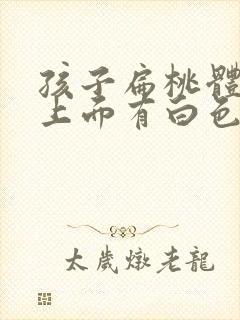 孩子扁桃體
上面有白色
太歲燉老龍